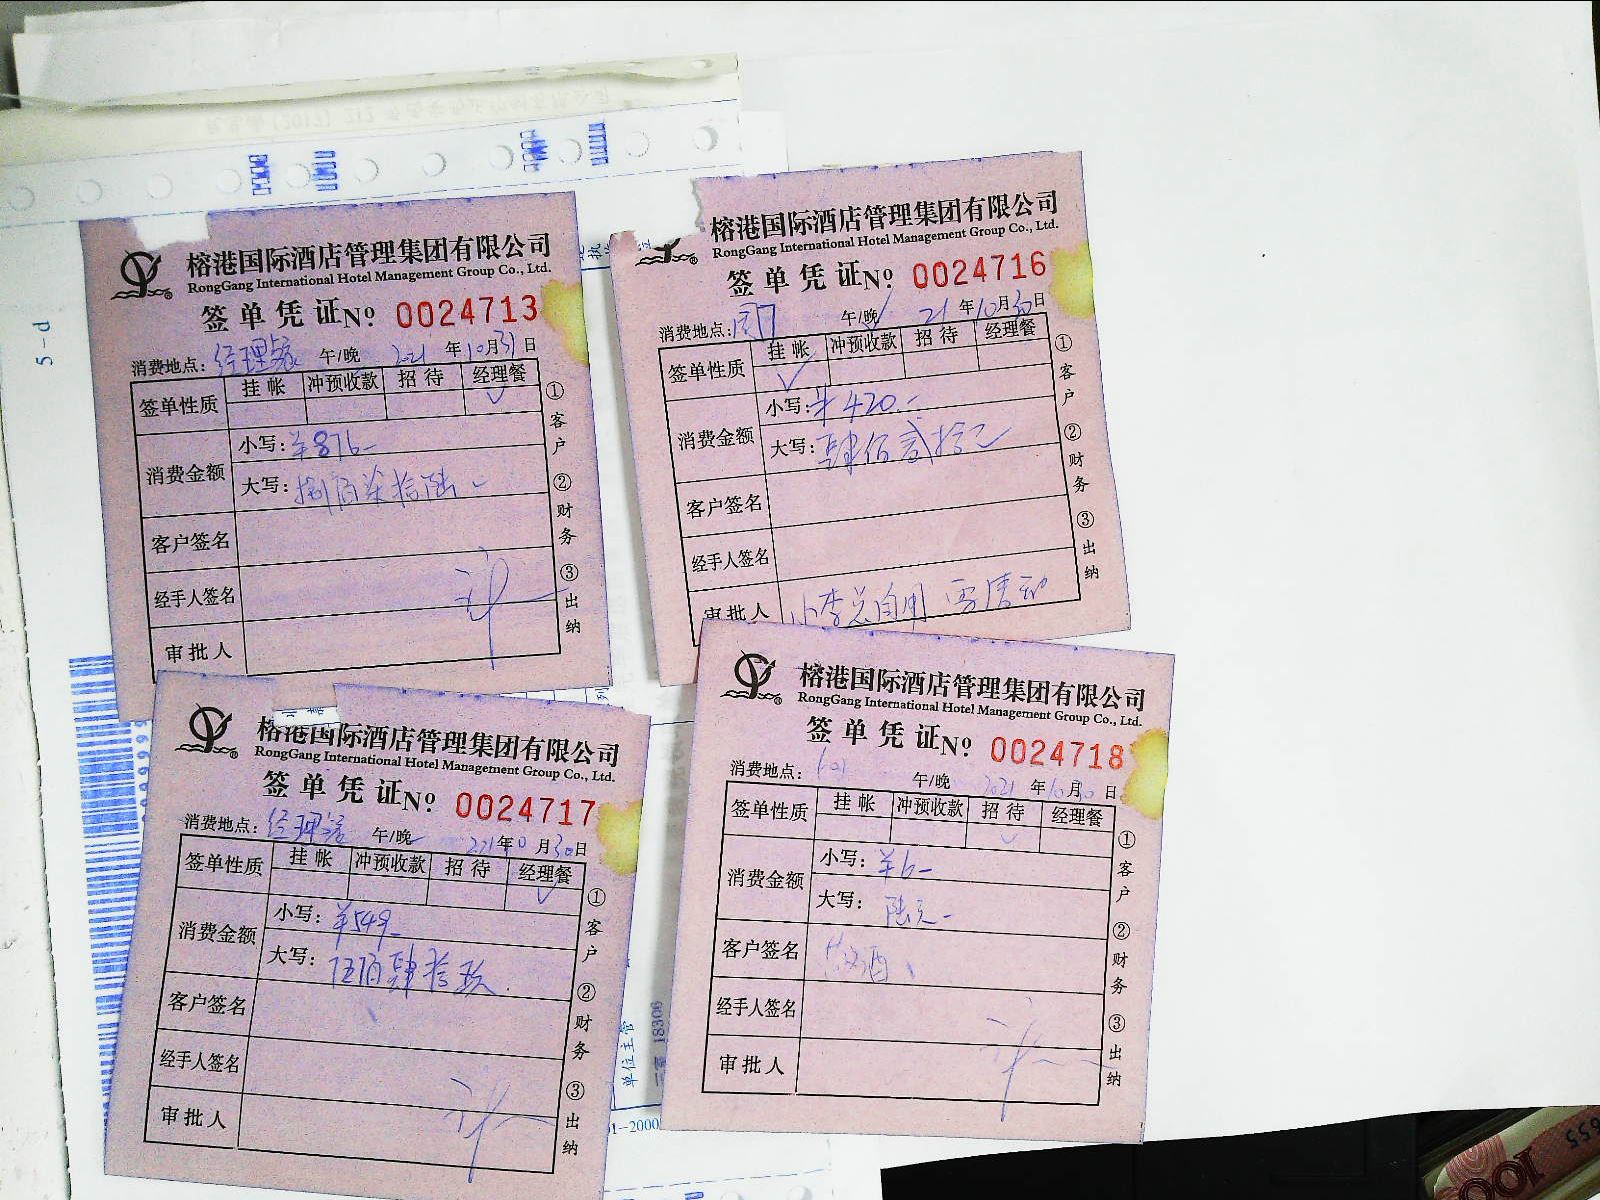 榕港国际酒店管理集团有限公司
RongGang International Hotel Management Group Co., Ltd.
签单凭证 № 0024713
消费地点: 经理 午/晚 2021 年 10 月 31 日
签单性质 挂帐 冲预收款 招待 经理餐 ✓
消费金额 小写: ¥876-
大写: 捌佰柒拾陆
客户签名
经手人签名
审批人
① 客户 ② 财务 ③ 出纳
榕港国际酒店管理集团有限公司
RongGang International Hotel Management Group Co., Ltd.
签单凭证 № 0024716
消费地点: 午/晚 ✓ 21 年 10 月 30 日
签单性质 挂帐 ✓ 冲预收款 招待 经理餐
消费金额 小写: ¥420.-
大写: 肆佰贰拾元
客户签名
经手人签名
审批人 小李总自用
① 客户 ② 财务 ③ 出纳
榕港国际酒店管理集团有限公司
RongGang International Hotel Management Group Co., Ltd.
签单凭证 № 0024717
消费地点: 经理 午/晚 2021 年 10 月 30 日
签单性质 挂帐 冲预收款 招待 经理餐 ✓
消费金额 小写: ¥549-
大写: 伍佰肆拾玖
客户签名
经手人签名
审批人
① 客户 ② 财务 ③ 出纳
榕港国际酒店管理集团有限公司
RongGang International Hotel Management Group Co., Ltd.
签单凭证 № 0024718
消费地点: 午/晚 2021 年 10 月 30 日
签单性质 挂帐 冲预收款 招待 ✓ 经理餐
消费金额 小写: ¥6-
大写: 陆元-
客户签名
经手人签名
审批人
① 客户 ② 财务 ③ 出纳
5-d
单位主管
18306
01-2000
100